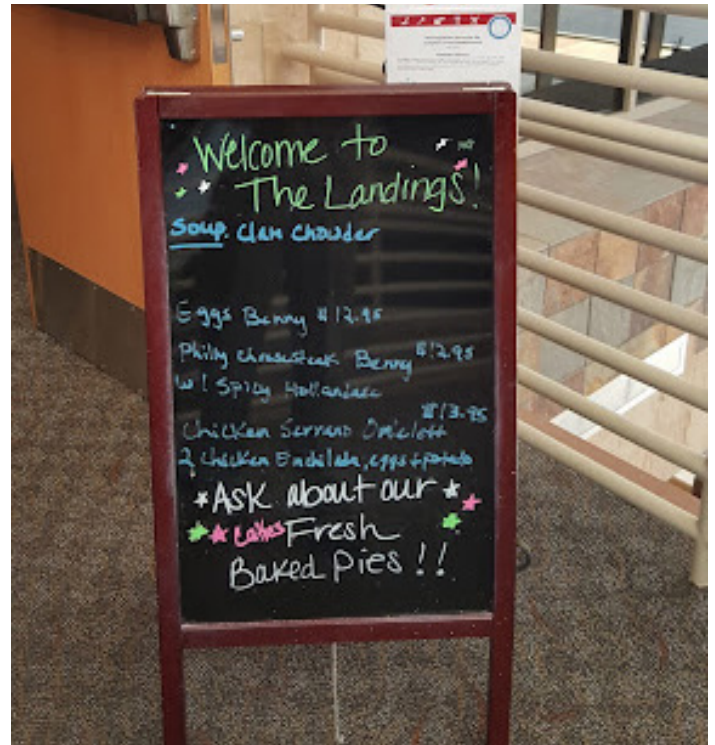 Welcome to
The Landings!
Soup. Clam Chowder
Eggs Benny $12.95
Philly Cheesesteak Benny $12.95
w/ Spicy Hollandaise
$13.95
Chicken Serrano Omelett
2 Chicken Enchilada, eggs + potato
Ask about our
Cakes Fresh
Baked Pies!!